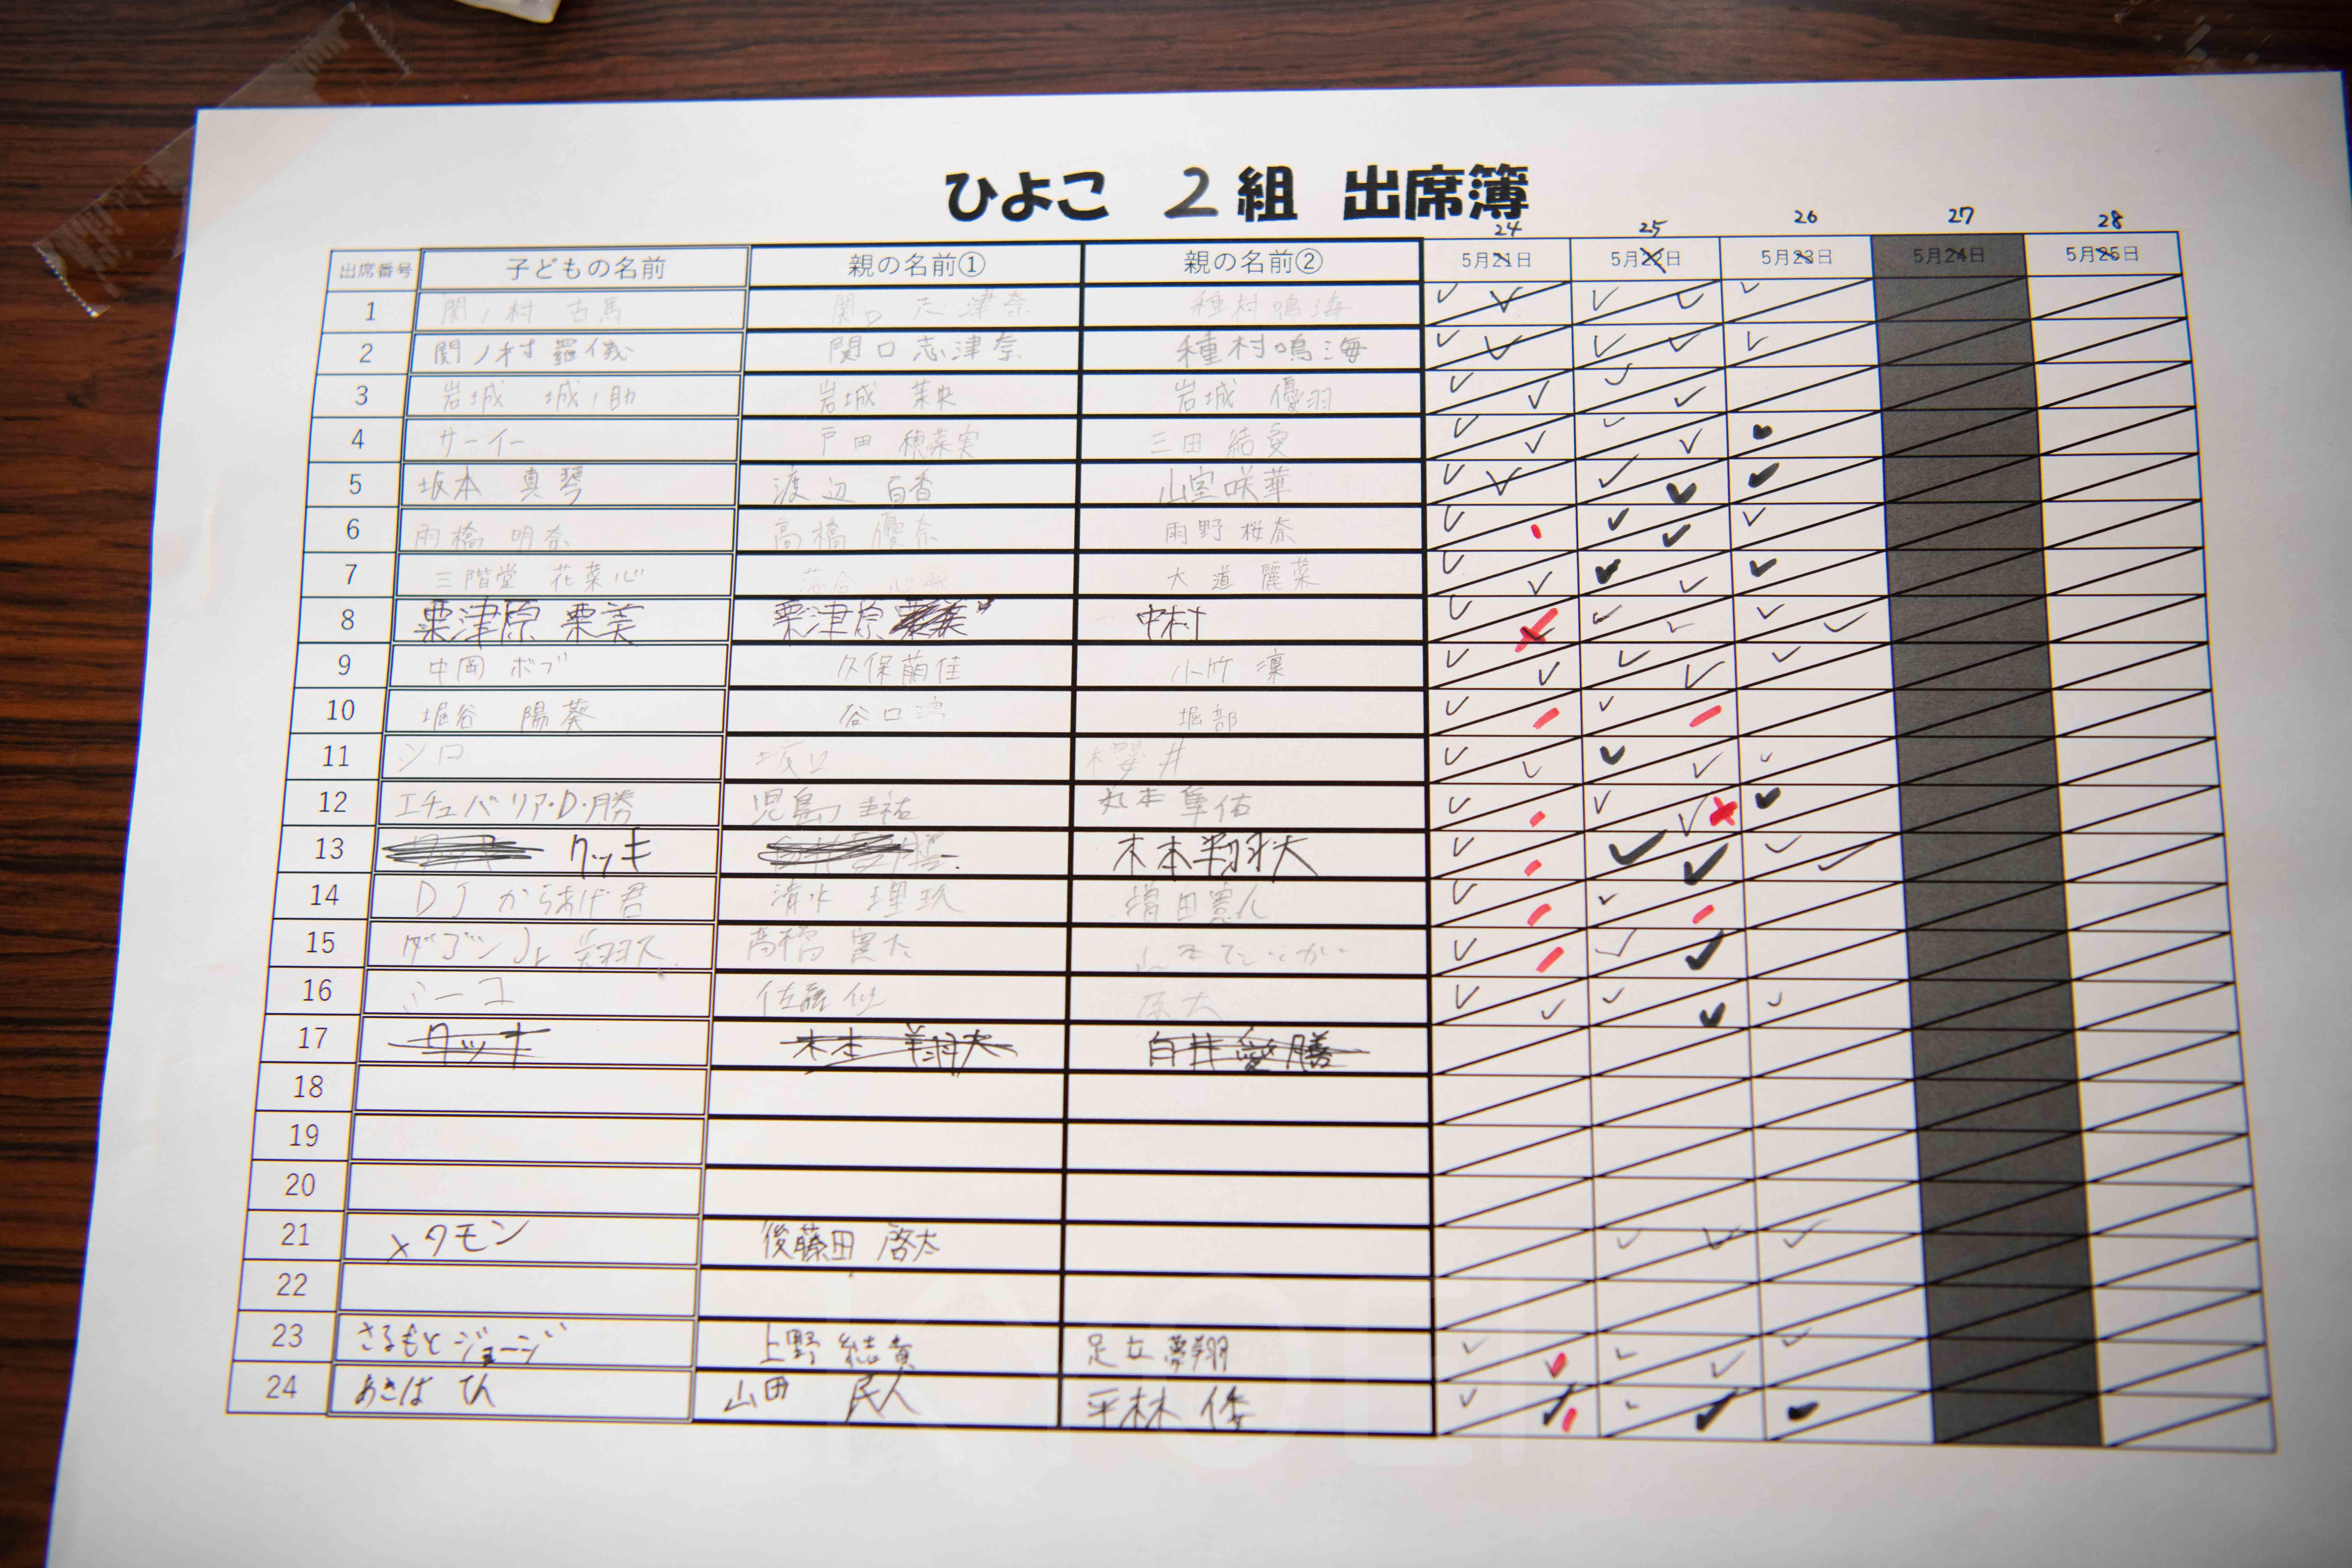 ひよこ 2組 出席簿
24 25 26 27 28
出席番号 子どもの名前 親の名前① 親の名前② 5月21日 5月22日 5月23日 5月24日 5月25日
1 関ノ村 古馬 関口 志津奈 種村鳴海
2 関ノ村 羅儀 関口志津奈 種村鳴海
3 岩城 城ノ助 岩城 茉央 岩城 優羽
4 サーイー 戸田 穂菜実 三田 結愛
5 坂本 真琴 渡辺 百香 山室咲華
6 雨橋 明奈 高橋 優奈 雨野 桜奈
7 三階堂 花菜心 落合 大道 麗菜
8 粟津原 栗美 粟津原 中村
9 中岡 ボブ 久保萌佳 小竹 凜
10 堀谷 陽葵 谷口 堀部
11 シロ 坂口 櫻井
12 エチュバリア・D・勝 児島圭祐 丸本隼佑
13 タッキ 木本翔大
14 DJ からあげ君 清水 理玖 増田憲人
15 ダゴンJr 高橋 寛太
16 ミーコ 佐藤
17 タッキ 木本 翔大 白井愛勝
18
19
20
21 メタモン 後藤田 啓太
22
23 さるもとジョージ 上野 結貴 足立夢翔
24 あきば てん 山田 民人 平林 倭